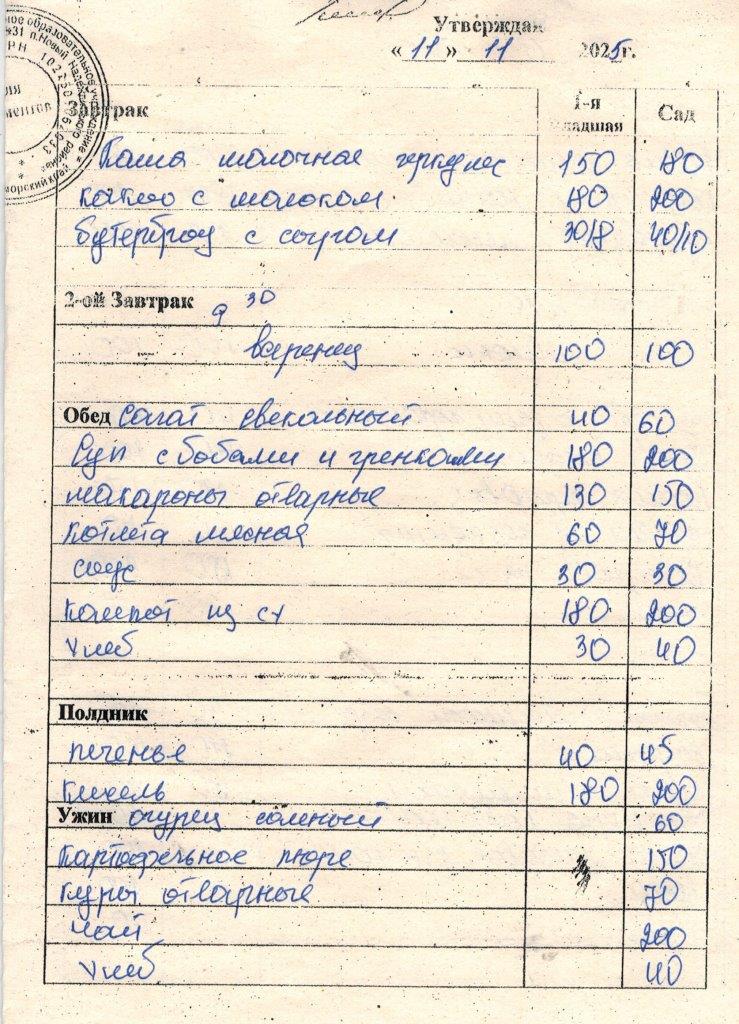 Утверждаю
« 11 » 11 2025г.
Завтрак 1-я младшая Сад
Каша молочная геркулес 150 180
какао с молоком 180 200
бутерброд с сыром 30/8 40/10
2-ой Завтрак 9 30
варенец 100 100
Обед Салат свекольный 40 60
Суп с бобами и гренками 180 200
макароны отварные 130 150
котлета мясная 60 70
соус 30 30
компот из сх 180 200
хлеб 30 40
Полдник
печенье 40 45
Кисель 180 200
Ужин огурец соленый 60
Картофельное пюре 150
куры отварные 70
чай 200
хлеб 40